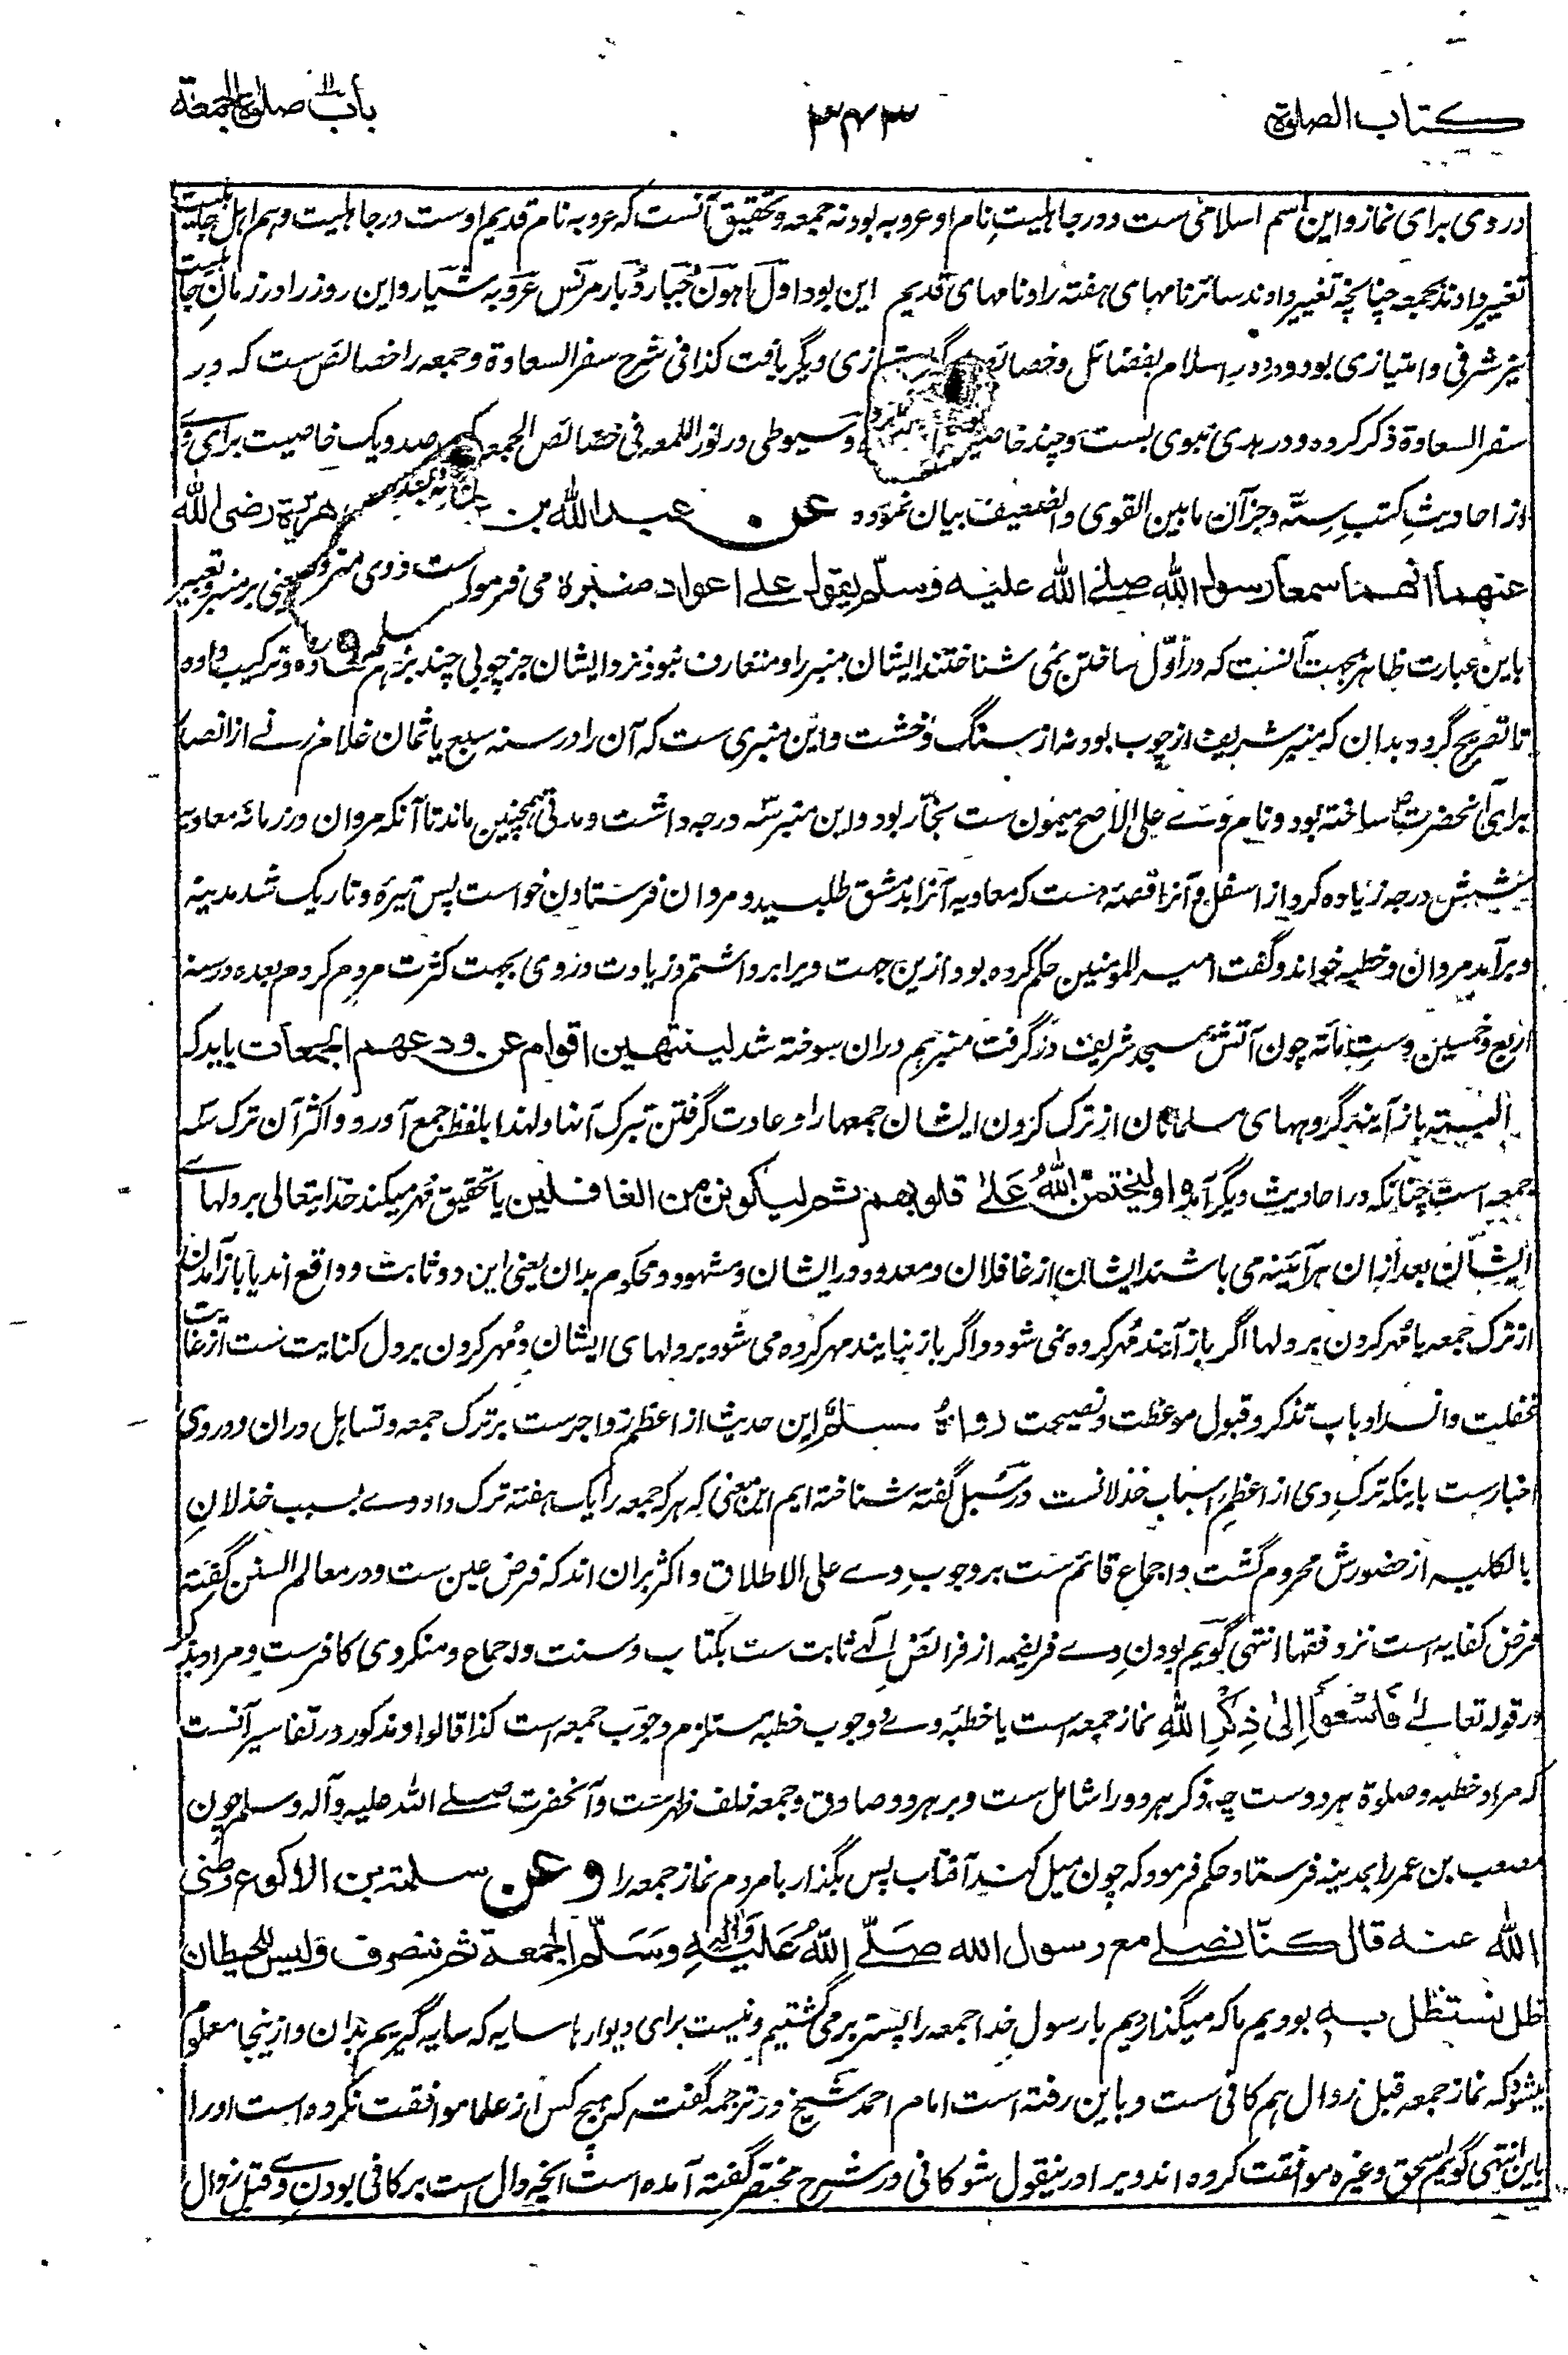 كتاب الصلوة ٣٤٣ باب صلوة الجمعة
در وی برای نماز و این اسم اسلامی ست و در جاهلیت نام او عروبه بود نه جمعه و تحقیق آنست که عروبه نام قدیم اوست در جاهلیت و هم اهل جاهلیت
تغییر دادند بجمعه چنانچه تغییر دادند سائر نامهای هفته را و نامهای قدیم این بود اول اهون جبار دبار مونس عروبه شیار و این روز را در زمان جاهلیت
نیز شرفی و امتیازی بود و در اسلام بفضائل و خصائص امتیازی دیگر یافت کذا فی شرح سفر السعادة و جمعه را خصائص ست که در
سفر السعادة ذکر کرده و در هدی نبوی بست و چند خاصیت و سیوطی در نور اللمعه فی خصائص الجمعه صد و یک خاصیت برای وی
از احادیث کتب سته و جز آن ما بین القوی و الضعیف بیان نموده عن عبد الله بن هريرة رضی الله
عنهما انهما سمعا رسول الله صلی الله علیه وسلم یقول علی اعواد منبره می فرمود یعنی بر منبر و تعبیر
باین عبارت ظاهر بجهت آنست که در اول ساختن نمی شناختند ایشان منبر را و متعارف نبود نزد ایشان جز چوبی چند بر هم نهاده و ترکیب داده
تا تصریح گردد بدان که منبر شریف از چوب بود نه از سنگ و خشت و این منبری ست که آن را در سنه سبع یا ثمان غلام زنی از انصار
برای آنحضرت ساخته بود و نام وی علی الاصح میمون ست نجار بود و این منبر سه درجه داشت و مدتی همچنین ماند تا آنکه مروان در زمانه معاویه
شش درجه زیاده کرد از اسفل و آنرا قصه است که معاویه آنرا بدمشق طلبید و مروان فرستادن خواست پس تیره و تاریک شد مدینه
و برآمد مروان و خطبه خواند و گفت امیر المومنین حکم کرده بود ازین جهت ویرا برداشتم و زیادت در وی بجهت کثرت مردم کردم بعده در سنه
اربع و خمسین و ستمائه چون آتش بمسجد شریف در گرفت منبر هم دران سوخته شد لینتهین اقوام عن ودعهم الجمعات باید که
البته باز آیند گروههای مسلمانان از ترک کردن ایشان جمعها را و عادت گرفتن بترک آنها و لهذا بلفظ جمع آورد و اکثر آن ترک سه
جمعه است چنانکه در احادیث دیگر آمده او لیختمن الله علی قلوبهم ثم لیکونن من الغافلین یا تحقیق مهر میکند خدایتعالی بر دلهای
ایشان بعد ازان هر آئینه می باشند ایشان از غافلان و معدود در ایشان و مشهود و محکوم بدان یعنی این دو ثابت و واقع اند یا باز آمدن
از ترک جمعه یا مهر کردن بر دلها اگر باز آیند مهر کرده نمی شود و اگر باز نیایند مهر کرده می شود بر دلهای ایشان و مهر کردن بر دل کنایت ست از غایت
غفلت و انسداد باب تذکر و قبول موعظت و نصیحت رواه مسلم این حدیث از اعظم زواجرست بر ترک جمعه و تساهل دران و در وی
اخبارست باینکه ترک وی از اعظم اسباب خذلانست در سبل گفته شناخته ایم این معنی که هر که جمعه را یک هفته ترک داد وے بسبب خذلان
بالکلیه از حضورش محروم گشت و اجماع قائم ست بر وجوب وے علی الاطلاق و اکثر بران اند که فرض عین ست و در معالم السنن گفته
فرض کفایه است نزد فقها انتهی گویم بودن وے فریضه از فرائض الٰهی ثابت ست بکتاب و سنت و اجماع و منکر وی کافرست و مراد بذکر
در قوله تعالے فَاسْعَوْا اِلٰى ذِكْرِ اللهِ نماز جمعه است یا خطبه وے و وجوب خطبه مستلزم وجوب جمعه است کذا قالوا و مذکور در تفاسیر آنست
که مراد خطبه و صلوة هر دوست چه ذکر هر دو را شامل ست و بر هر دو صادق و جمعه خلف ظهرست و آنحضرت صلے الله علیه و آله و سلم چون
مصعب بن عمر را بمدینه فرستاد حکم فرمود که چون میل کند آفتاب پس بگذار با مردم نماز جمعه را و عن سلمة بن الاکوع رضی
الله عنه قال کنا نصلے مع رسول الله صَلَّی اللهُ عَلَیْهِ وَاٰلِهٖ وَسَلَّم الجمعة ثم ننصرف ولیس للحیطان
ظل نستظل به بودیم ما که میگذاردیم با رسول خدا جمعه را پستر بر می گشتیم و نیست برای دیوارها سایه که سایه گیریم بدان و ازینجا معلوم
میشود که نماز جمعه قبل زوال هم کافی ست و باین رفته است امام احمد شیخ در ترجمه گفته که هیچ کس از علما موافقت نکرده است او را
باین انتهی گویم اسحق و غیره موافقت کرده اند ویرا در ینقول شوکانی در شرح مختصر گفته آمده است انچه دال است بر کافی بودن وے قبل زوال